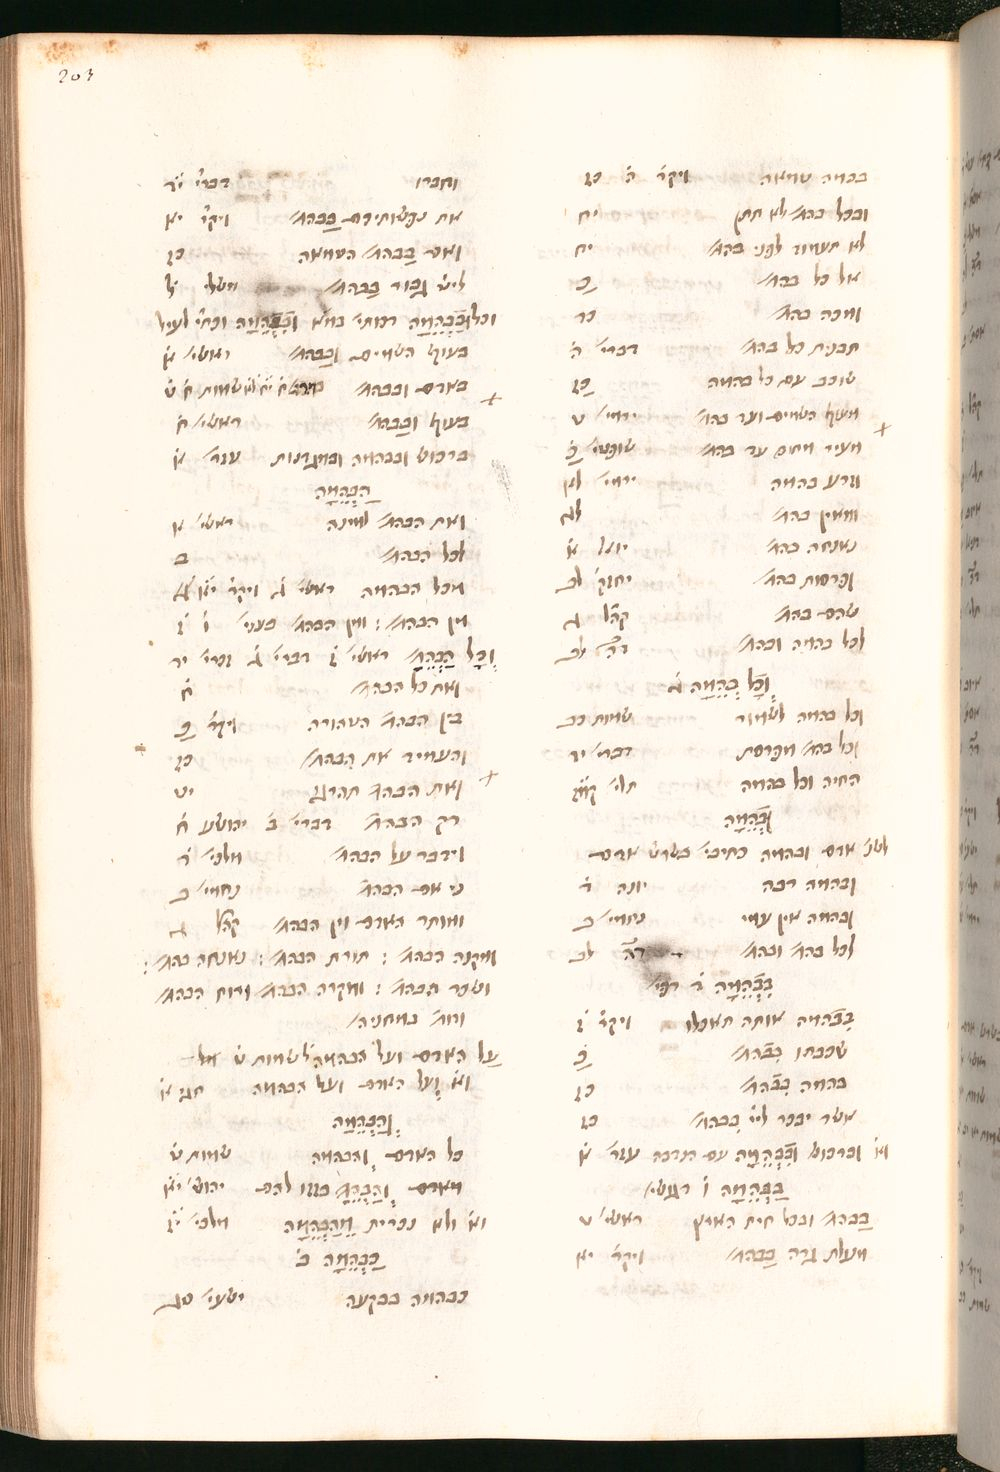 203
בבהמה טמאה ויקר׳ ה כז
ובכל בהמ׳ לא תתן יח
לא תעמוד לפני בהמ׳ יח
אל כל בהמ׳ כ
ומכה בהמ׳ כד
תבנית כל בהמ׳ דברי׳ ה
שוכב עם כל בהמה כז
מעוף השמים ועד בהמ׳ ירמי׳ ט
מעיר מתום עד בהמ׳ שופטי׳ כ
וזרע בהמה ירמי׳ לא
ומאין בהמ׳ לג
נאנחה בהמ׳ יואל א
ופרסות בהמ׳ יחזק׳ לב
שהם בהמ׳ קהל ג
לכל בהמה ובהמ׳ דה לב
וְכָל בְּהֵמָה ג
וכל בהמה לשמור שמות כב
וכל בהמ׳ מפרסת דברי׳ יד
החיה וכל בהמה תלי׳ קמח
וּבְהֵמָה
לשני אדם ובהמה כתיבי׳ בשרש אדם
ובהמה רבה יונה ד
ובהמה אין עמי נחמי׳ ב
לכל בהמ׳ ובהמ׳ דה לב
בִּבְהֵמָה ד רפי׳
בבהמה אותה תאכלו ויקר׳ ז
שכבתו בבהמ׳ כ
בהמה בבהמ׳ כז
אשר יבכר ליי בבהמ׳ כז
וא׳ וברכוש וּבִבְהֵמָה עם הנדבה עזר׳ א
בַּבְּהֵמָה ו דגשי׳
בבהמ׳ ובכל חית הארץ ראשי׳ ט
מעלת גרה בבהמ׳ ויקר׳ יא
וחברו דברי׳ יד
את נפשותיכם בבהמ׳ ויקר׳ יא
ואם בבהמ׳ הטמאה כז
ליש גבור בבהמ׳ משלי ל
וכל וּבַבְּהֵמָה דכותי׳ במ׳א וּבִבְהֵמָה וכתי׳ לעיל
בעוף השמים ובבהמ׳ ראשי׳ א
באדם ובבהמ׳ שמות ח ט
בעוף ובבהמ׳ ראשי׳ ח
ברכוש ובבהמה ובמגדנות עזר׳ א
הַבְּהֵמָה
ואת הבהמ׳ למינה ראשי׳ א
לכל הבהמ׳ ב
מכל הבהמה ראשי׳ ג ויקר׳ יא
מן הבהמ׳: ומן הבהמ׳ בעני׳ ו ז
וְכָל הַבְּהֵמָה ראשי׳ ז דברי׳ ג זכרי׳ יד
ואת כל הבהמ׳ ח
בין הבהמ׳ הטהורה ויקר׳ כ
והעמיד את הבהמ׳ כז
ואת הבהמ׳ תהרגו יט
רק הבהמ׳ דברי׳ ב יהושע ח
וידבר על הבהמ׳ מלכי׳ ד
כי אם הבהמ׳ נחמי׳ ב
ומותר האדם מן הבהמ׳ קהל ג
ומקנה הבהמ׳: תורת הבהמ׳: נאנחה בהמ׳:
ושכר הבהמ׳: ומקרה הבהמ׳ ורוח הבהמ׳
על האדם ועל הבהמה לשמות ט
וא׳ ועל האדם ועל הבהמה חגי א
וְהַבְּהֵמָה
כל האדם והבהמה שמות ט
מאדם וְהַבְּהֵמָה בזזו להם יהוש׳ יא
וא׳ ולא נכרית מֵהַבְּהֵמָה מלכי׳ יח
כַּבְּהֵמָה ב
כבהמה בבקעה ישעי׳ סג